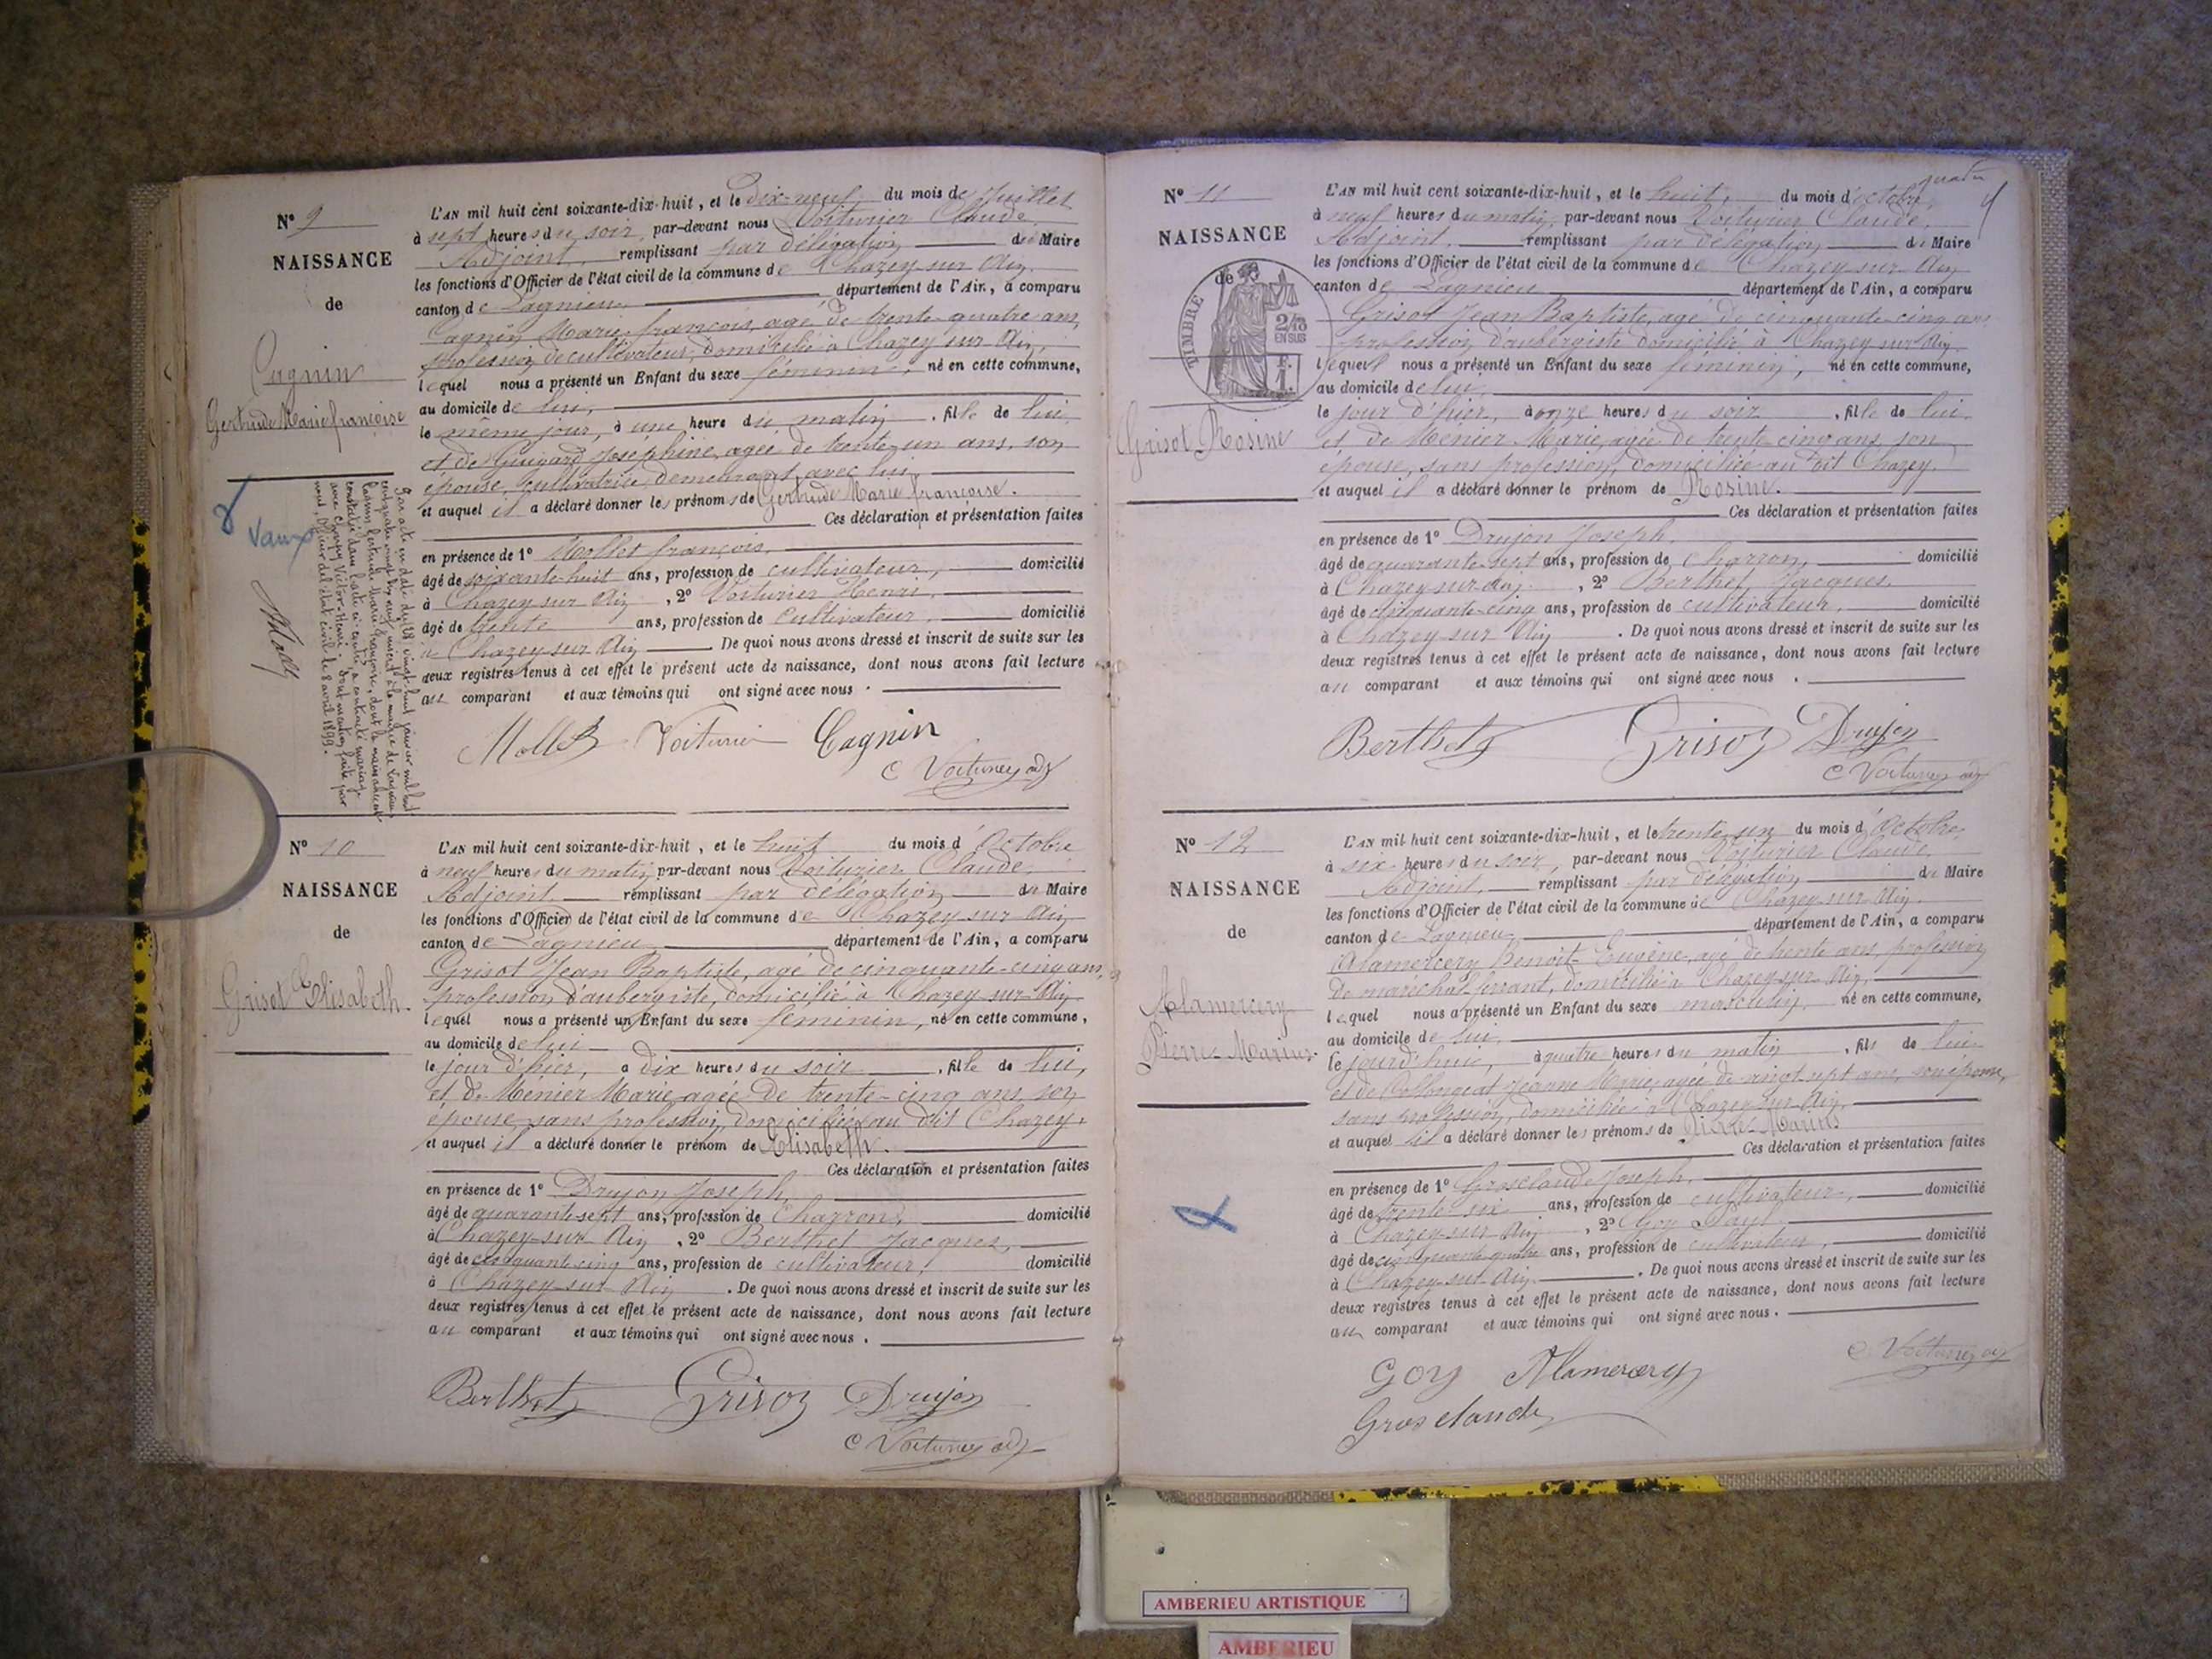 N° 9
NAISSANCE
de
Cagnin
Gertrude Marie françoise
Vaux
L'AN mil huit cent soixante-dix-huit, et le Dix-neuf du mois de Juillet
à sept heures du soir, par-devant nous Voiturier Claude,
Adjoint, remplissant par délégation du Maire
les fonctions d'Officier de l'état civil de la commune de Chazey-sur-Ain
canton de Lagnieu département de l'Ain, a comparu
Cagnin Marie françois, agé de trente-quatre ans,
profession de cultivateur, domicilié à Chazey-sur-Ain,
lequel nous a présenté un Enfant du sexe féminin, né en cette commune,
au domicile de lui,
le même jour, à une heure du matin, fille de lui
et de Guigard Joséphine, agée de trente-un ans, son
épouse, cultivatrice, demeurant avec lui,
et auquel il a déclaré donner les prénoms de Gertrude Marie françoise.
Ces déclaration et présentation faites
en présence de 1° Mollet françois,
âgé de soixante-huit ans, profession de cultivateur, domicilié
à Chazey sur Ain, 2° Voiturier Henri,
âgé de trente ans, profession de Cultivateur, domicilié
à Chazey sur Ain De quoi nous avons dressé et inscrit de suite sur les
deux registres tenus à cet effet le présent acte de naissance, dont nous avons fait lecture
au comparant et aux témoins qui ont signé avec nous.
Mollet Voiturier Cagnin
C Voiturier adj
N° 10
NAISSANCE
de
Grisot Elisabeth.
L'AN mil huit cent soixante-dix-huit, et le huit du mois d'Octobre
à neuf heures du matin, par-devant nous Voiturier Claude,
Adjoint, remplissant par délégation du Maire
les fonctions d'Officier de l'état civil de la commune de Chazey-sur-Ain
canton de Lagnieu département de l'Ain, a comparu
Grisot Jean Baptiste, agé de cinquante-cinq ans,
profession d'aubergiste, domicilié à Chazey sur Ain
lequel nous a présenté un Enfant du sexe féminin, né en cette commune,
au domicile de lui
le jour d'hier, à dix heures du soir, fille de lui,
et de Ménier Marie, agée de trente-cinq ans, son
épouse, sans profession, domiciliée au dit Chazey,
et auquel il a déclaré donner le prénom de Elisabeth.
Ces déclaration et présentation faites
en présence de 1° Drujon Joseph,
âgé de quarante-sept ans, profession de Charron, domicilié
à Chazey-sur Ain, 2° Berthet Jacques,
âgé de cinquante cinq ans, profession de cultivateur, domicilié
à Chazey-sur Ain. De quoi nous avons dressé et inscrit de suite sur les
deux registres tenus à cet effet le présent acte de naissance, dont nous avons fait lecture
au comparant et aux témoins qui ont signé avec nous.
Berthet Grisoz Drujon
C Voiturier adj
quatre
N° 11
NAISSANCE
de
TIMBRE
2/10
EN SUS
F.
1.
Grisot Rosine
L'AN mil huit cent soixante-dix-huit, et le huit, du mois d'octobre,
à neuf heures du matin, par-devant nous Voiturier Claude,
Adjoint, remplissant par délégation du Maire
les fonctions d'Officier de l'état civil de la commune de Chazey-sur-Ain
canton de Lagnieu département de l'Ain, a comparu
Grisot Jean Baptiste, agé de cinquante-cinq ans
profession d'aubergiste domicilié à Chazey sur Ain
lequel nous a présenté un Enfant du sexe féminin, né en cette commune,
au domicile de lui,
le jour d'hier, à onze heures du soir, fille de lui
et de Ménier Marie, agée de trente-cinq ans, son
épouse, sans profession, domiciliée au dit Chazey.
et auquel il a déclaré donner le prénom de Rosine.
Ces déclaration et présentation faites
en présence de 1° Drujon Joseph,
âgé de quarante-sept ans, profession de Charron, domicilié
à Chazey-sur-Ain, 2° Berthet Jacques,
âgé de cinquante-cinq ans, profession de cultivateur, domicilié
à Chazey sur Ain. De quoi nous avons dressé et inscrit de suite sur les
deux registres tenus à cet effet le présent acte de naissance, dont nous avons fait lecture
au comparant et aux témoins qui ont signé avec nous.
Berthet Grisoz Drujon
C Voiturier adj
N° 12
NAISSANCE
de
Alamercery
Pierre-Marius.
L'AN mil huit cent soixante-dix-huit, et le trente-un du mois d'Octobre,
à six heures du soir, par-devant nous Voiturier Claude,
Adjoint, remplissant par délégation du Maire
les fonctions d'Officier de l'état civil de la commune de Chazey-sur-Ain.
canton de Lagnieu département de l'Ain, a comparu
Alamercery Benoit-Eugène, agé de trente ans, profession
de maréchal ferrant, domicilié à Chazey-sur-Ain,
lequel nous a présenté un Enfant du sexe masculin, né en cette commune,
au domicile de lui,
le jourd'hui, à quatre heures du matin, fils de lui
et de Jeanne Marie, agée de vingt-sept ans, son épouse,
sans profession, domiciliée à Chazey-sur-Ain,
et auquel il a déclaré donner les prénoms de Pierre-Marius
Ces déclaration et présentation faites
en présence de 1° Groselaude Joseph,
âgé de trente six ans, profession de cultivateur, domicilié
à Chazey-sur Ain, 2° Goy Paul
âgé de cinquante-quatre ans, profession de cultivateur, domicilié
à Chazey-sur Ain. De quoi nous avons dressé et inscrit de suite sur les
deux registres tenus à cet effet le présent acte de naissance, dont nous avons fait lecture
au comparant et aux témoins qui ont signé avec nous.
C Voiturier adj
Goy Alamercery
Groselaude
AMBERIEU ARTISTIQUE
AMBERIEU